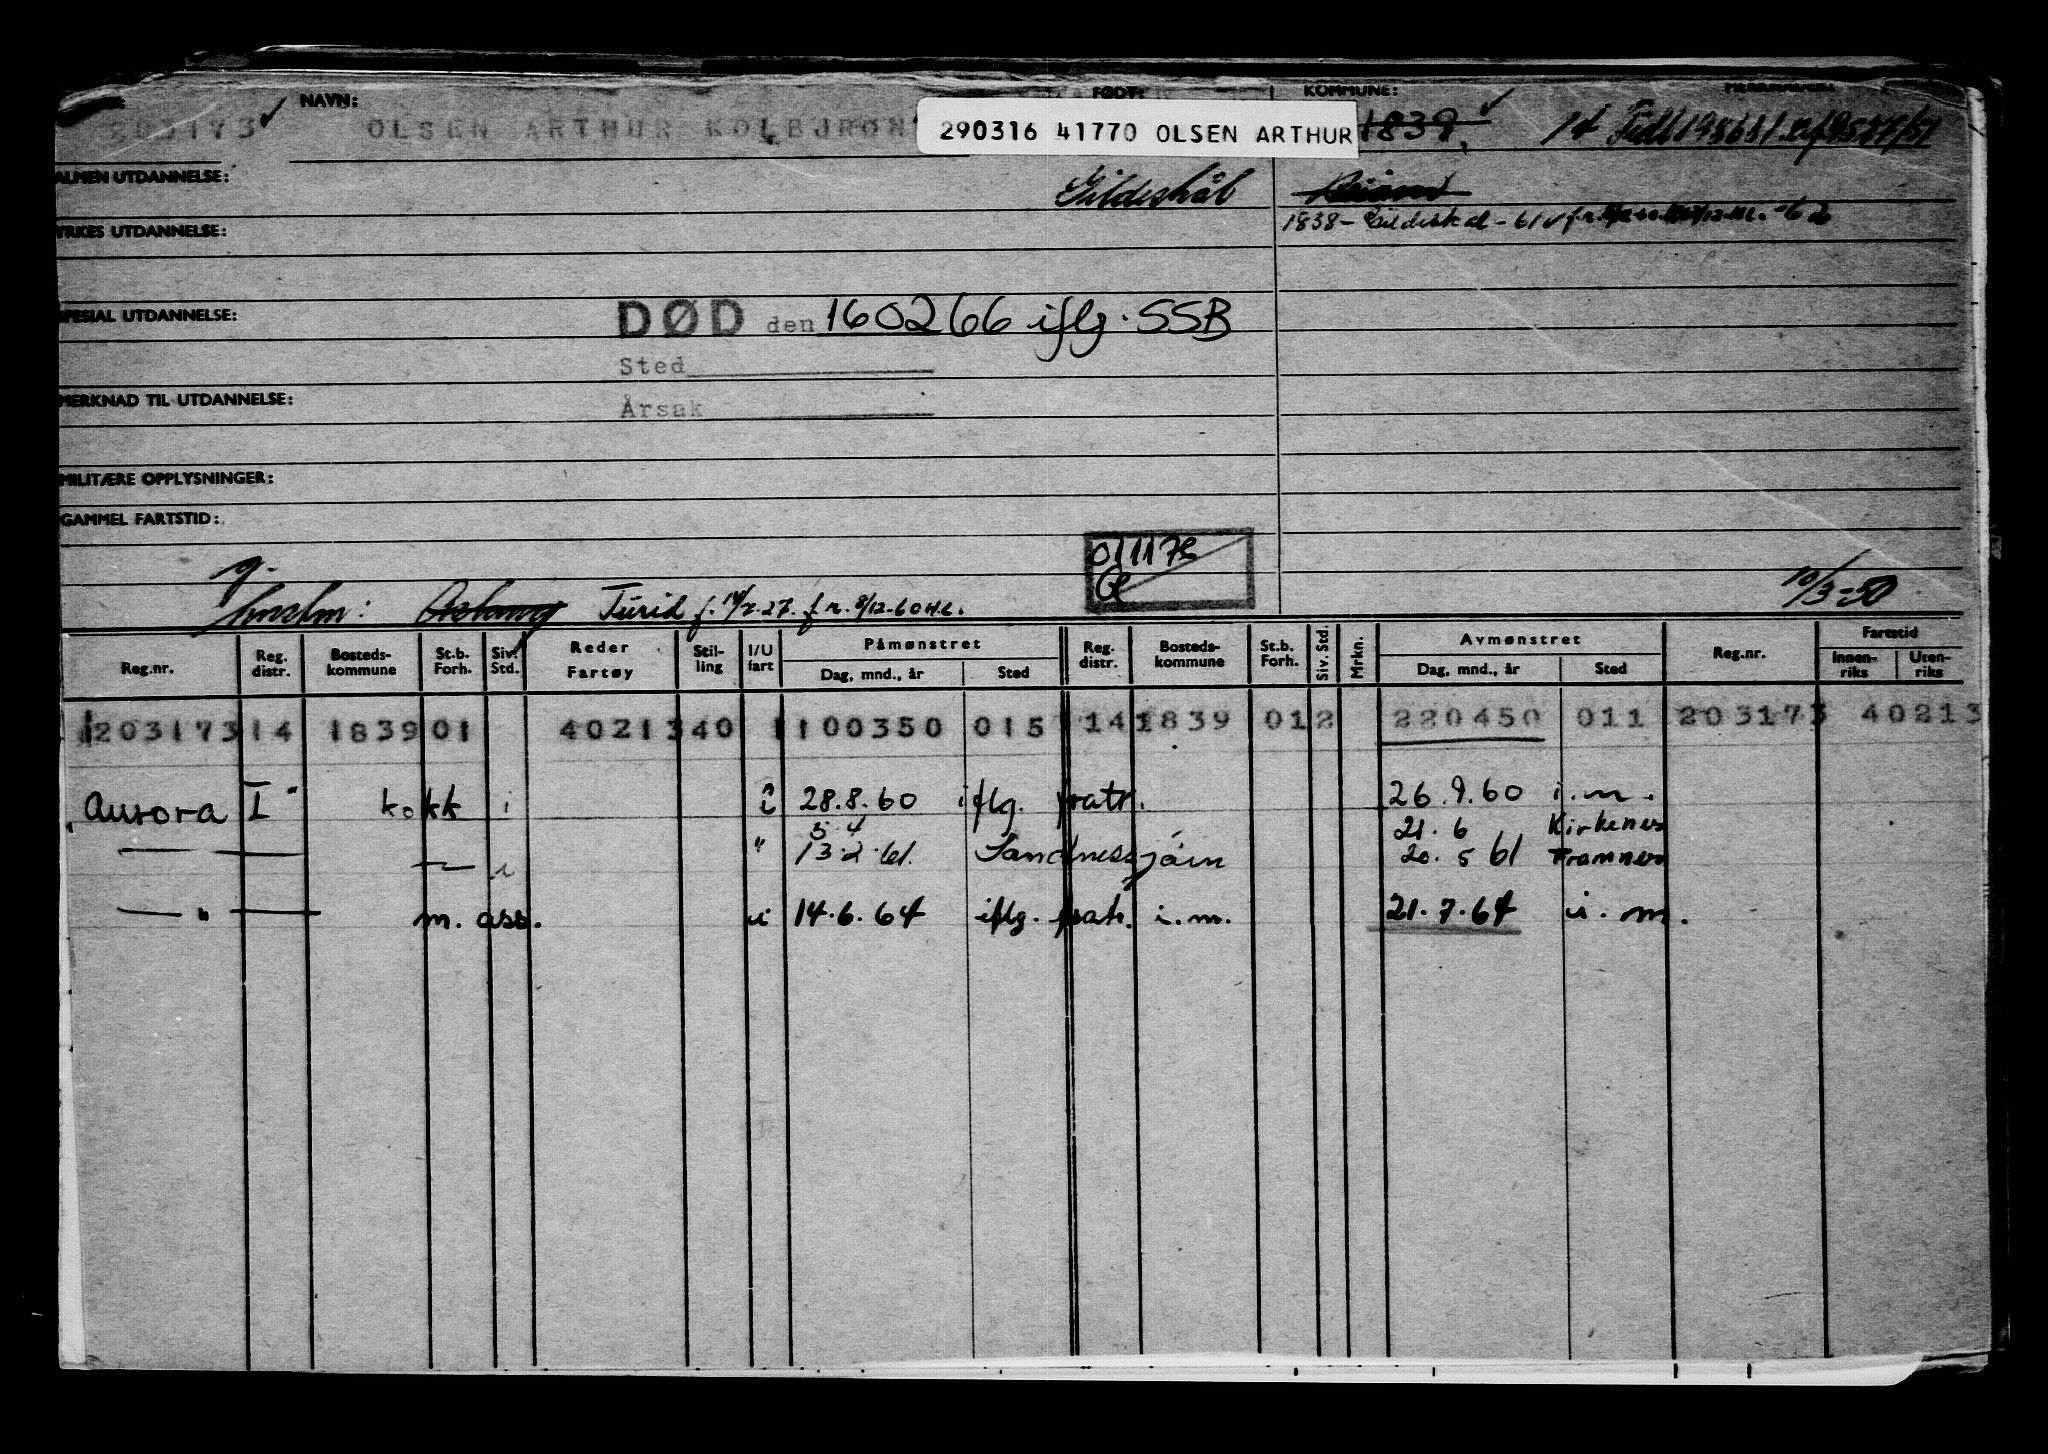 NAVN: FØDT: KOMMUNE:
203173 OLSEN ARTHUR KOLBJRØN 290316 41770 OLSEN ARTHUR 1839, 14
ALMEN UTDANNELSE: Gildeskål
1838 - Gildeskål -
YRKES UTDANNELSE:
SPESIAL UTDANNELSE: DØD den 160266 iflg. SSB
Sted
Årsak
MERKNAD TIL UTDANNELSE:
MILITÆRE OPPLYSNINGER:
GAMMEL FARTSTID:
g. 10/3-50
Turid f. f.r. 8/12-60 H.L.
Reg.nr. Reg. distr. Bosteds- kommune St.b. Forh. Siv. Std. Reder Fartøy Stil- ling I/U fart Påmønstret Dag, mnd., år Sted Reg. distr. Bosteds- kommune St.b. Forh. Siv. Std. Mrkn. Avmønstret Dag, mnd., år Sted Reg.nr. Fartstid Innen- riks Uten- riks
1203173 14 1839 01 40213 40 1 100350 015 14 1839 01 2 220450 011 203173 40213
Aurora I" kokk i i 28.8.60 iflg. fratr. 26.9.60 i.m.
5.4 21.6 Kirkenes
— — i " 13.2.61. Sandnessjøen 20.5 61 Tromsø
— " — m. ass. u 14.6.64 iflg. fratr. i.m. 21.7.64 i.m.